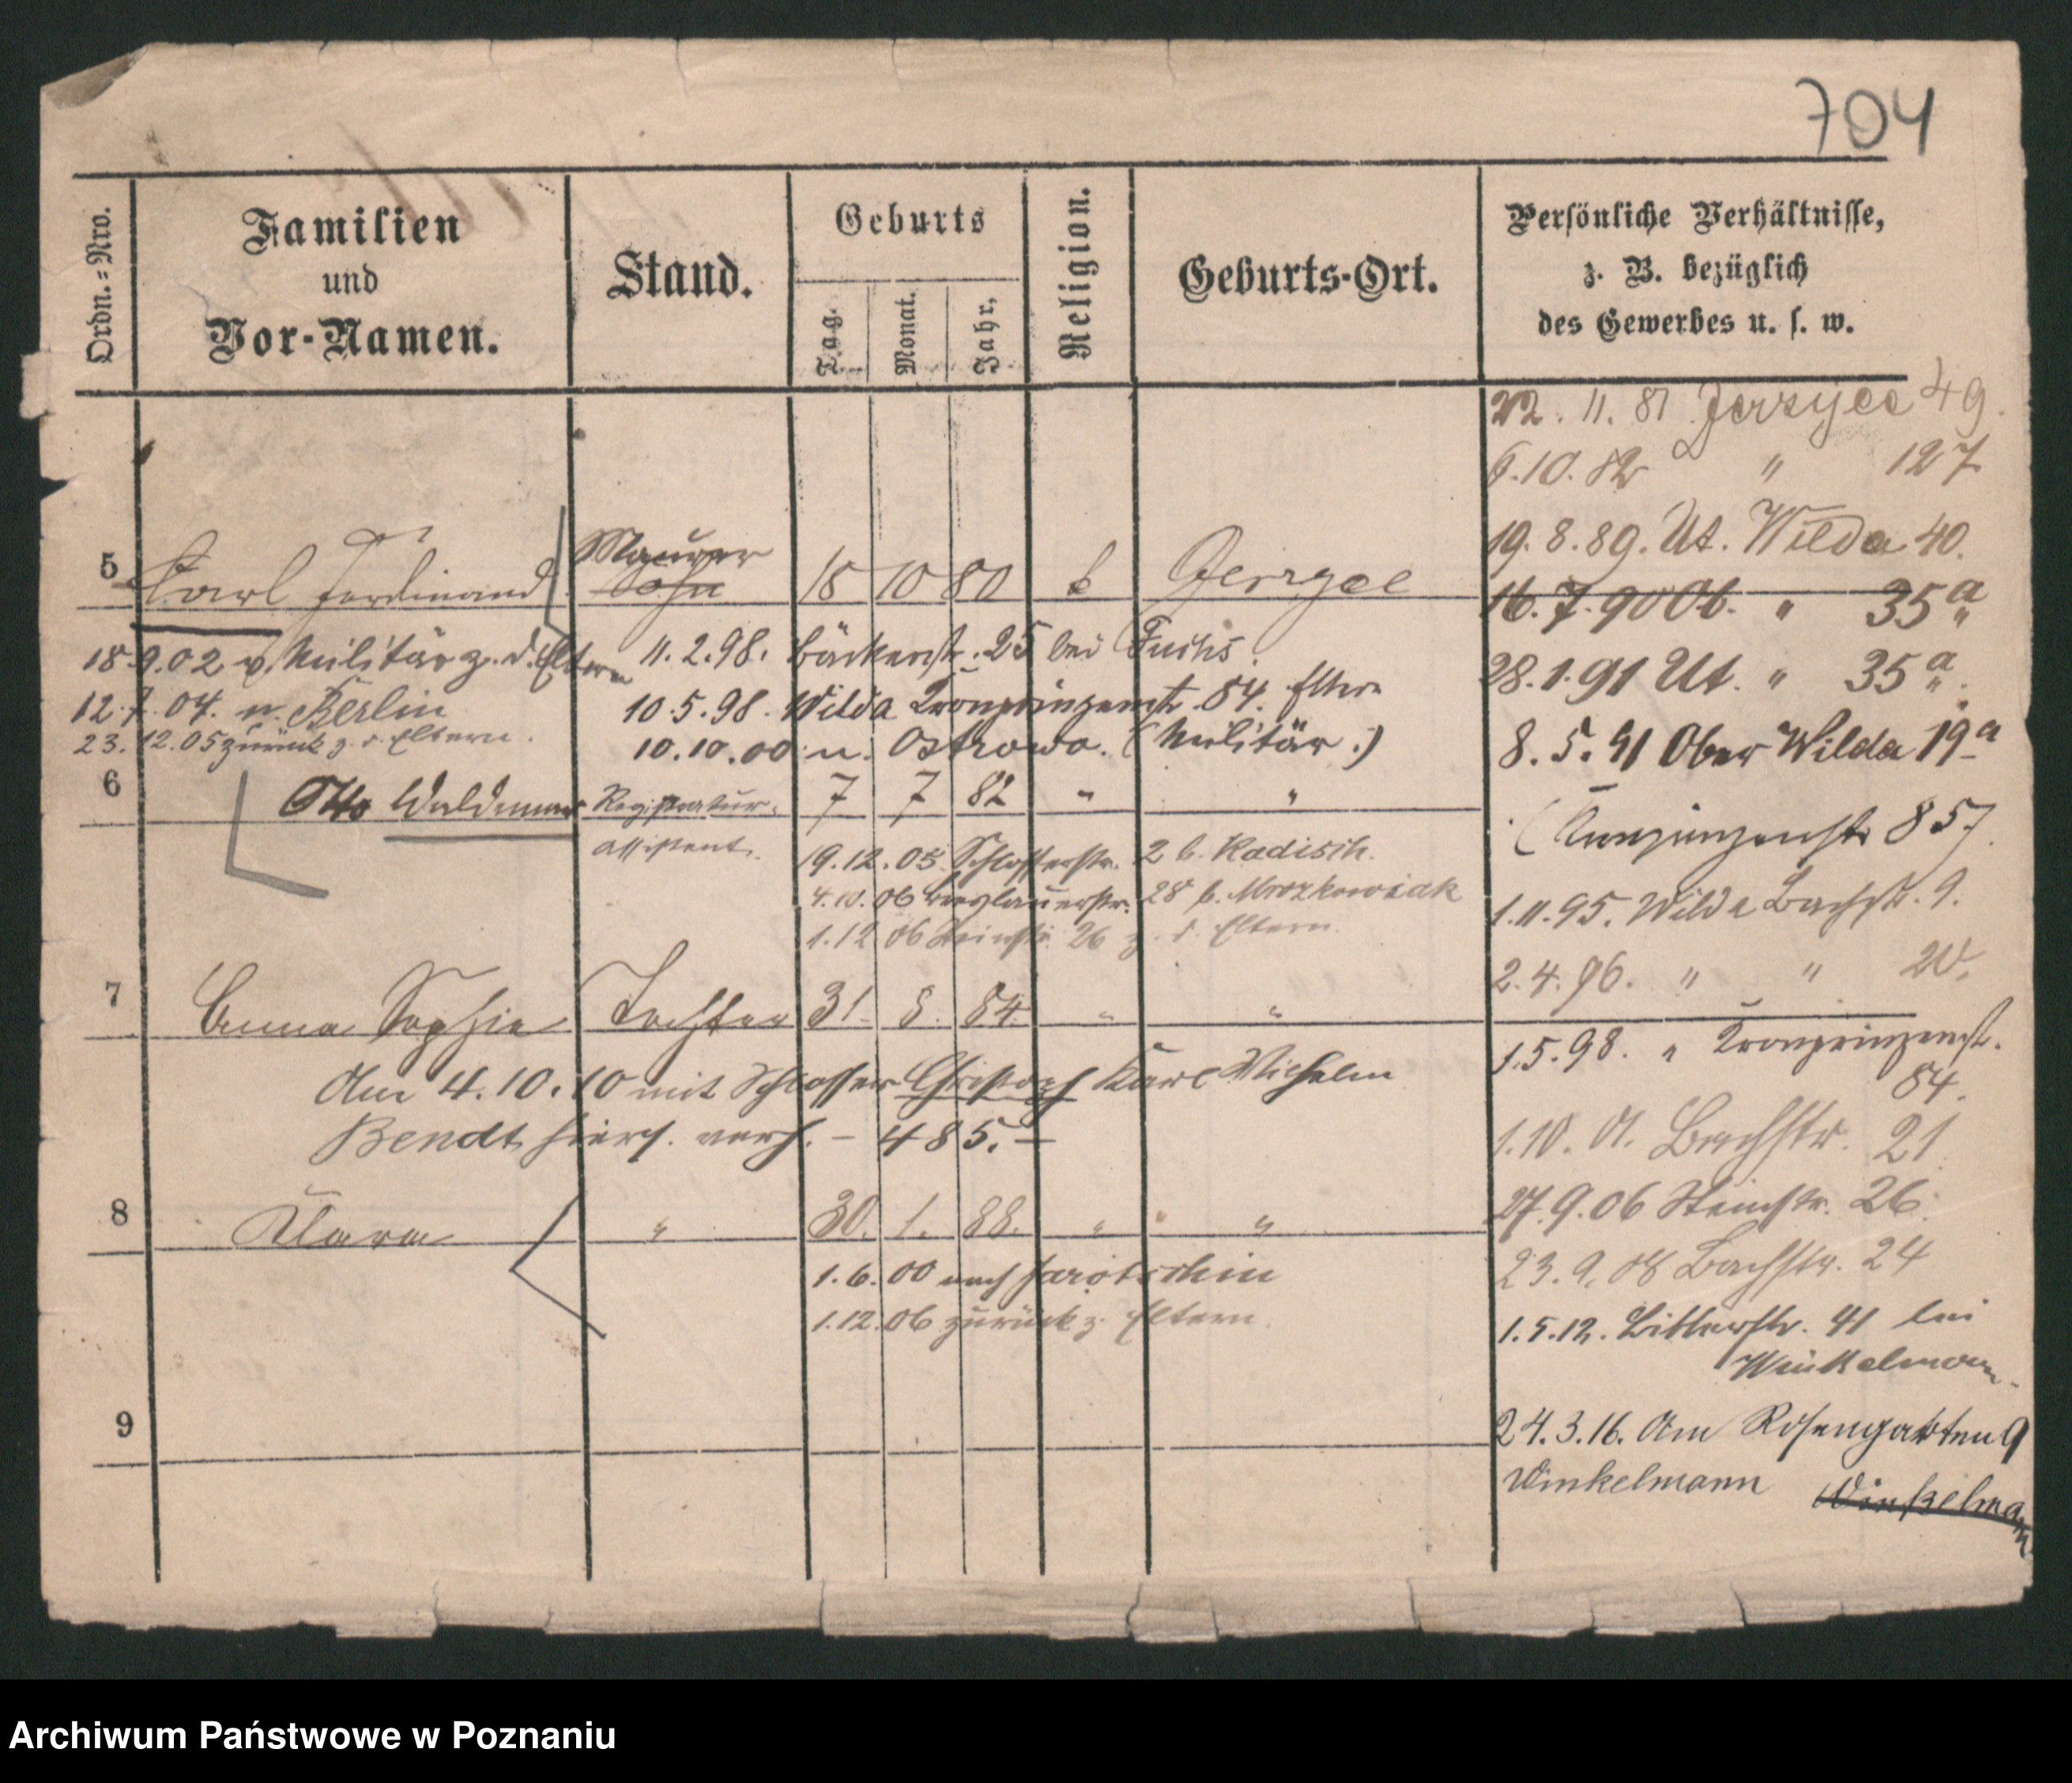 704
Ordn.-Nro.
Familien
und
Vor-Namen.
Stand.
Geburts
Tag.
Monat.
Jahr,
Religion.
Geburts-Ort.
Persönliche Verhältnisse,
z. B. bezüglich
des Gewerbes u. s. w.
22. 11. 81 Jerzyce 49.
6.10.82 " 127
19.8.89. Ut. Wilda 40.
5 Carl Ferdinand Maurer Sohn 18 10 80 Jerzyce
16.7.90 Ob. " 35a
18.9.02 v. Militär z. d. Eltern
11.2.98. Bäckerstr. 25 bei Fuchs
28.1.91 Ut. " 35a.
12.7.04. n. Berlin
10.5.98. Wilda Kronprinzenst. 84. Eltern
23.12.05 zurück z. d. Eltern.
10.10.00 n. Ostrowo. (Militär.)
8.5.91 Ober Wilda 19a
6 Otto Waldemar Registratur- 7 7 82 " "
assistent.
(Kronprinzenstr 85)
19.12.05. Schlosserstr. 2 b. Radisch.
4.10.06 Breslauerstr. 28 b. Mrozkowiak
1.11.95. Wilda Bachstr. 9.
1.12.06 Steinstr. 26 z. d. Eltern.
2.4.96. " " 20.
7 Emma Sophie Tochter 31. 8. 84. " "
1.5.98. " Kronprinzenst.
84.
Am 4.10.10 mit Schlosser Christoph Karl Wilhelm
Bendt hiers. verh. – 485. –
1.10.01. Bachstr. 21
8 Klara " 30. 1. 88. " "
27.9.06 Steinstr. 26.
1.6.00 nach Jarotschin
23.9.08 Bachstr. 24
1.12.06 zurück z. Eltern.
1.5.12. Bitterstr. 41 bei
Winkelmann.
9
24.3.16. Am Rosengarten 9
Winkelmann Winkelmann
Archiwum Państwowe w Poznaniu